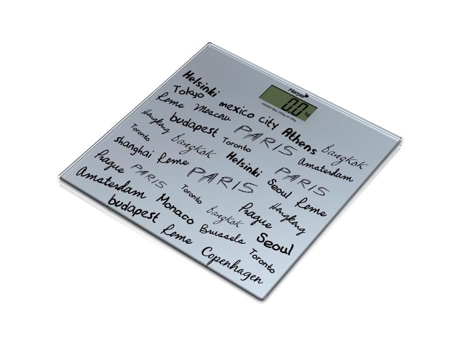 Hansa
0.0
Helsinki
Tokyo mexico city Athens Bangkok
Rome Moscau PARIS Amsterdam
Hongkong budapest Toronto
Toronto Bangkok Helsinki PARIS
shanghai Rome PARIS Seoul Rome
Prague PARIS Toronto Prague Hongkong
Amsterdam Monaco Bangkok Seoul
budapest Brussels Toronto
Rome Copenhagen